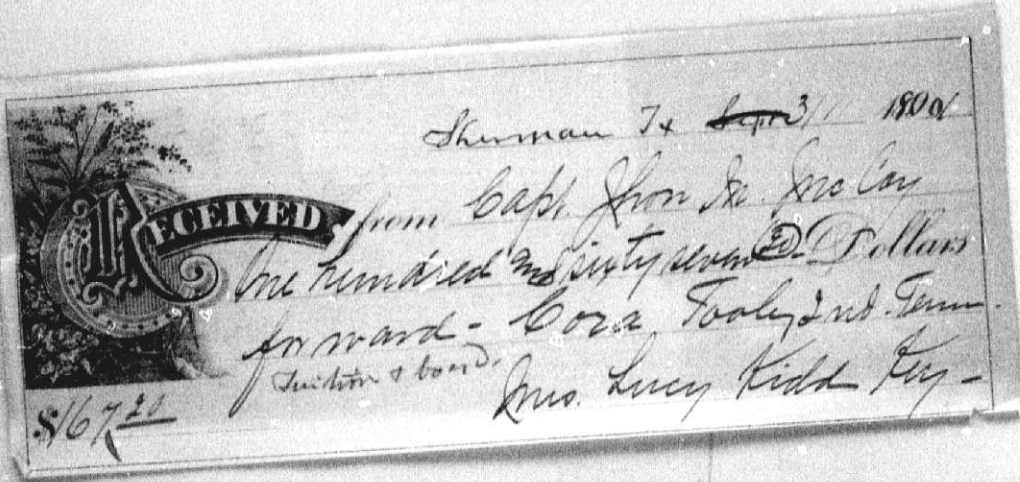 Sherman Tx Sept 3/ 189
RECEIVED from Capt. Jhon M. McCoy
One hundred and sixty seven 20 Dollars
for ward - Cora Tooly 2nd Term.
Tuition & board.
Mrs. Lucy Kidd Key -
$167 20